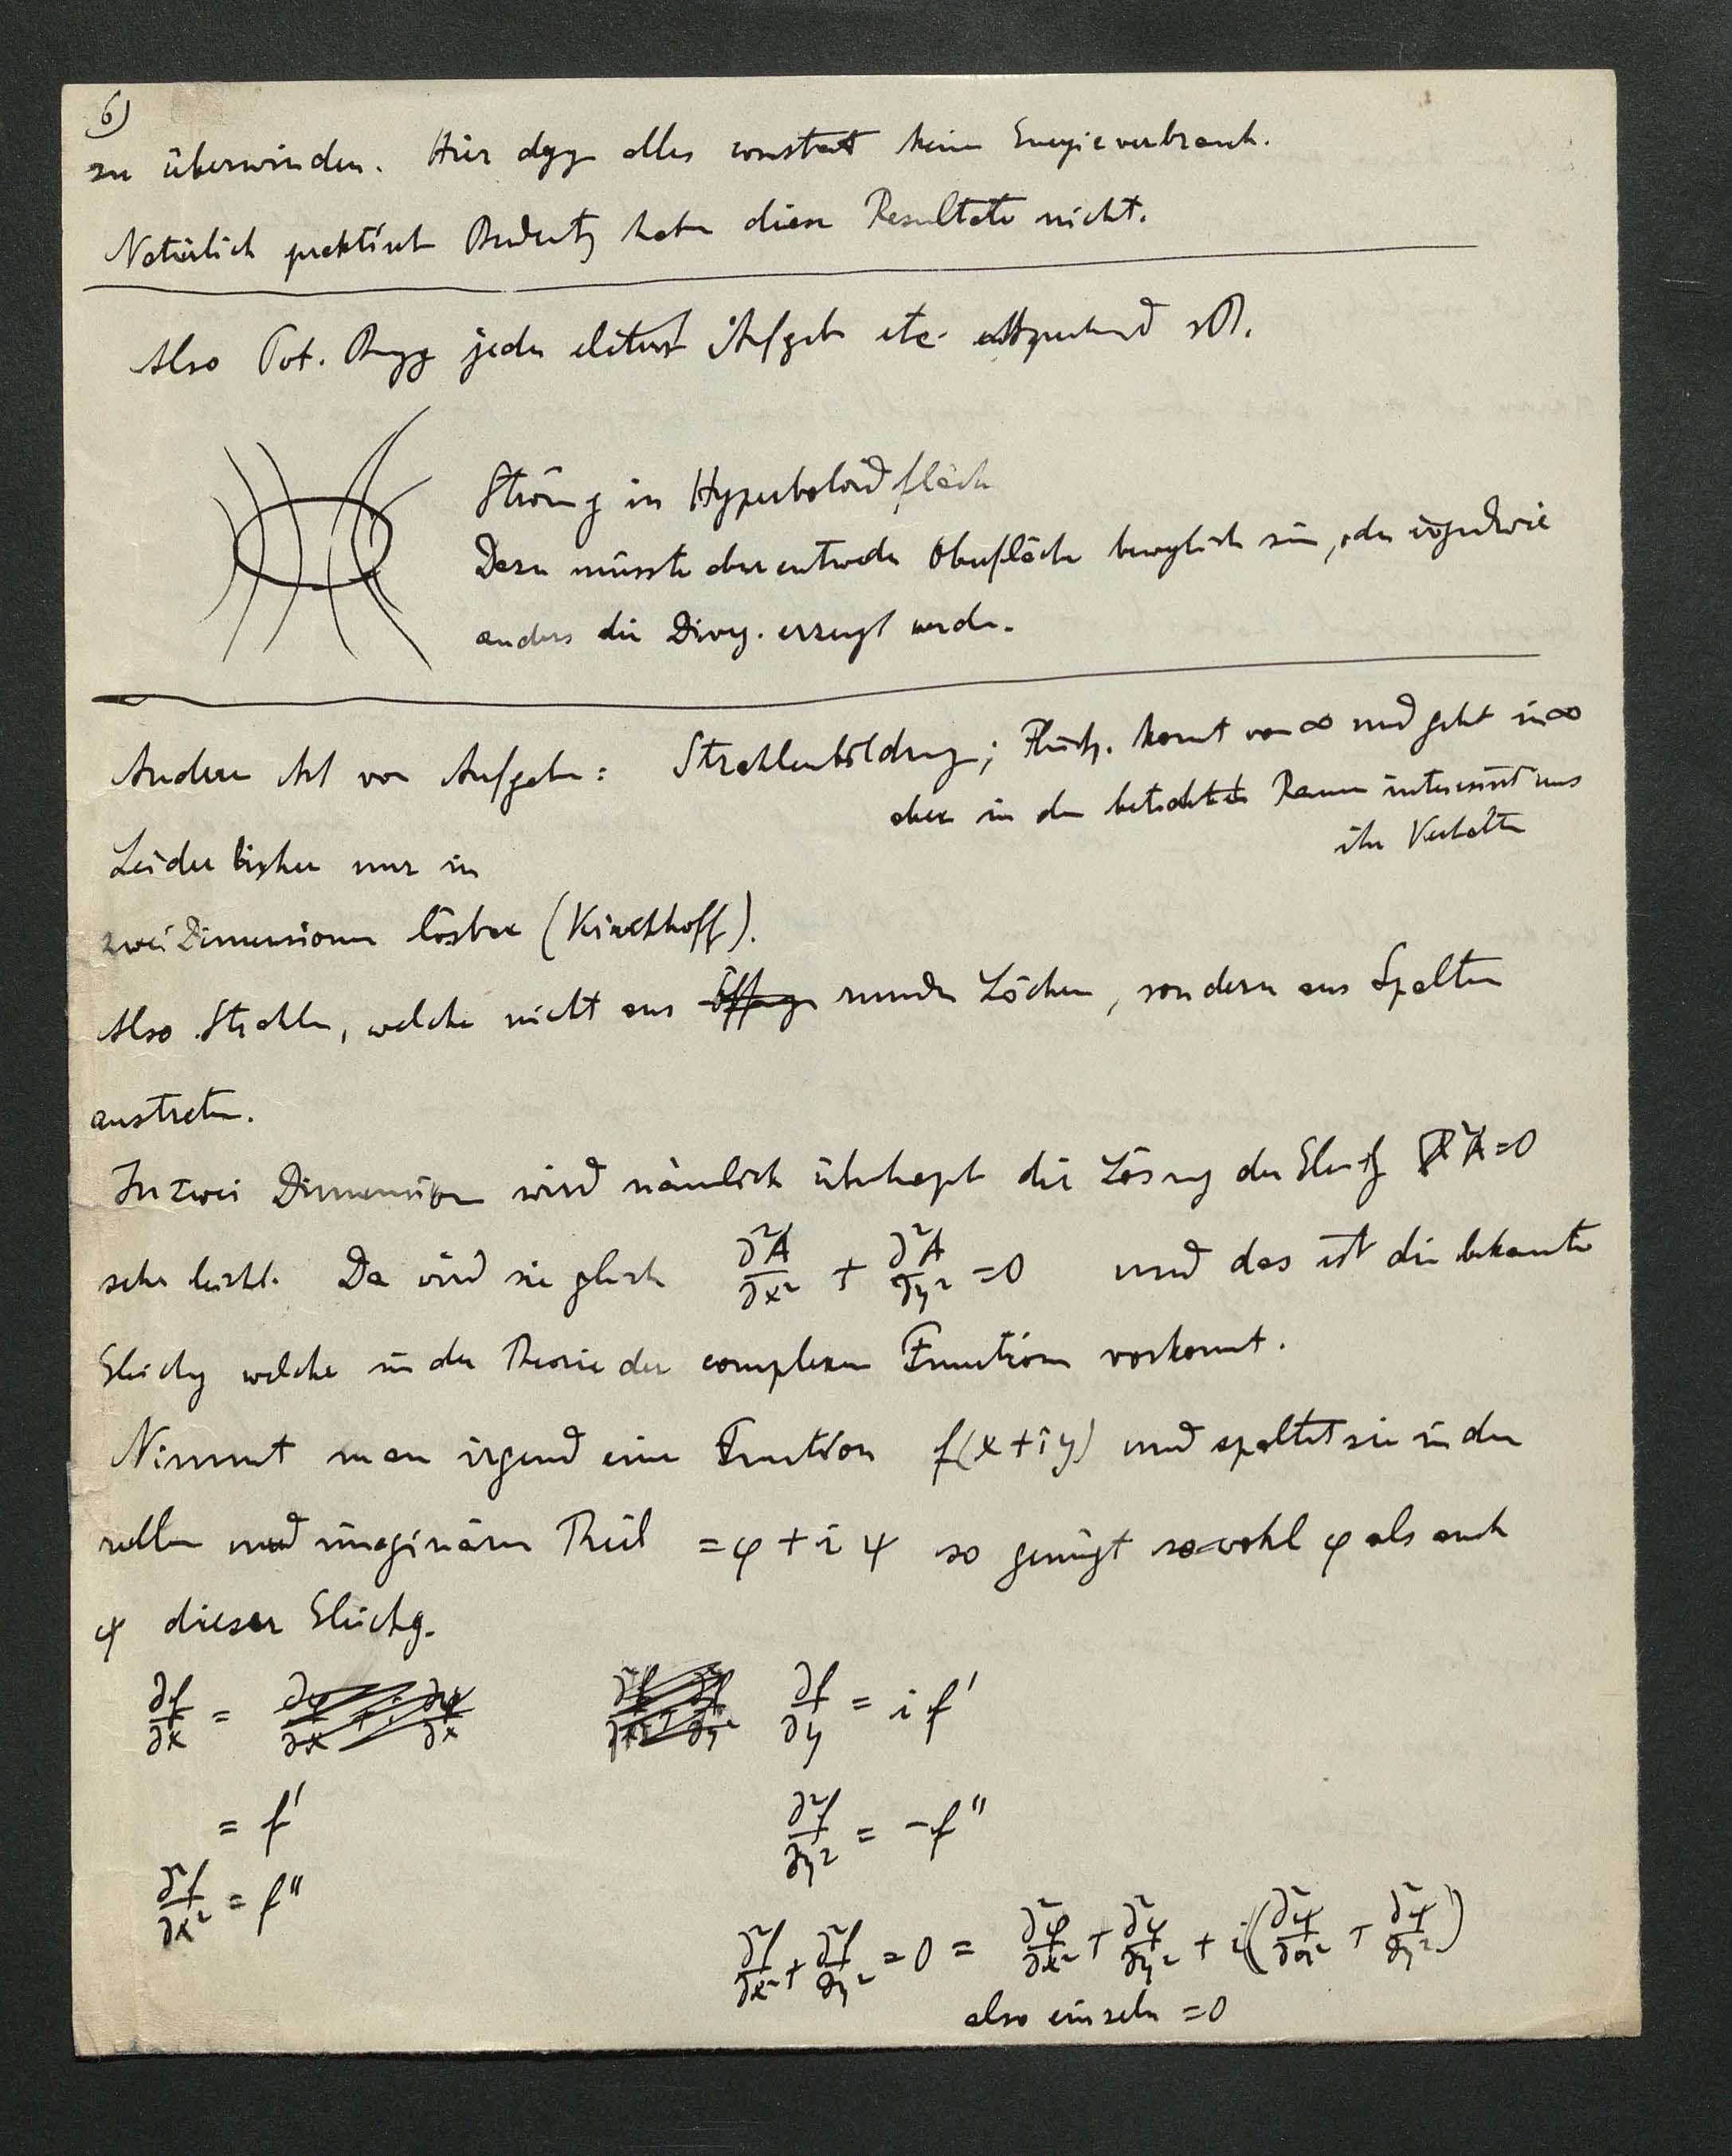 6)
zu überwinden. Hier dgg alles constant keine Energieverbrauch.
Natürlich praktisch Bedeutg haben diese Resultate nicht.
Also Pot. Bwgg jeder Aufgabe etc. entsprechend zB.
Strömg in Hyperboloidfläch
Dazu müsste aber entweder Oberfläche beweglich sein, oder irgendwie
anders die Diverg. erzeugt werden.
Andere Art von Aufgaben: Strahlenbildung; Flüssgk. kommt von ∞ und geht in ∞
aber in dem betrachteten Raum interessirt uns
ihr Verhalten
Leider bisher nur in
zwei Dimensionen lösbar (Kirchhoff).
Also Strahlen, welche nicht aus runden Löchern, sondern aus Spalten
austreten.
In zwei Dimensionen wird nämlich überhaupt die Lösung der Gleichg ∇²A=0
sehr leicht. Da wird sie gleich ∂²A/∂x² + ∂²A/∂y² =0 und das ist die bekannte
Gleichg welche in der Theorie der complexen Functionen vorkommt.
Nimmt man irgend eine Function f(x+iy) und spaltet sie in den
reellen und imaginären Theil =φ+iψ so genügt sowohl φ als auch
ψ dieser Gleichg.
∂f/∂x = ∂f/∂y = i f'
= f' ∂²f/∂y² = -f''
∂²f/∂x² = f''
∂²f/∂x² + ∂²f/∂y² = 0 = ∂²φ/∂x² + ∂²φ/∂y² + i(∂²ψ/∂x² + ∂²ψ/∂y²)
also einzeln =0